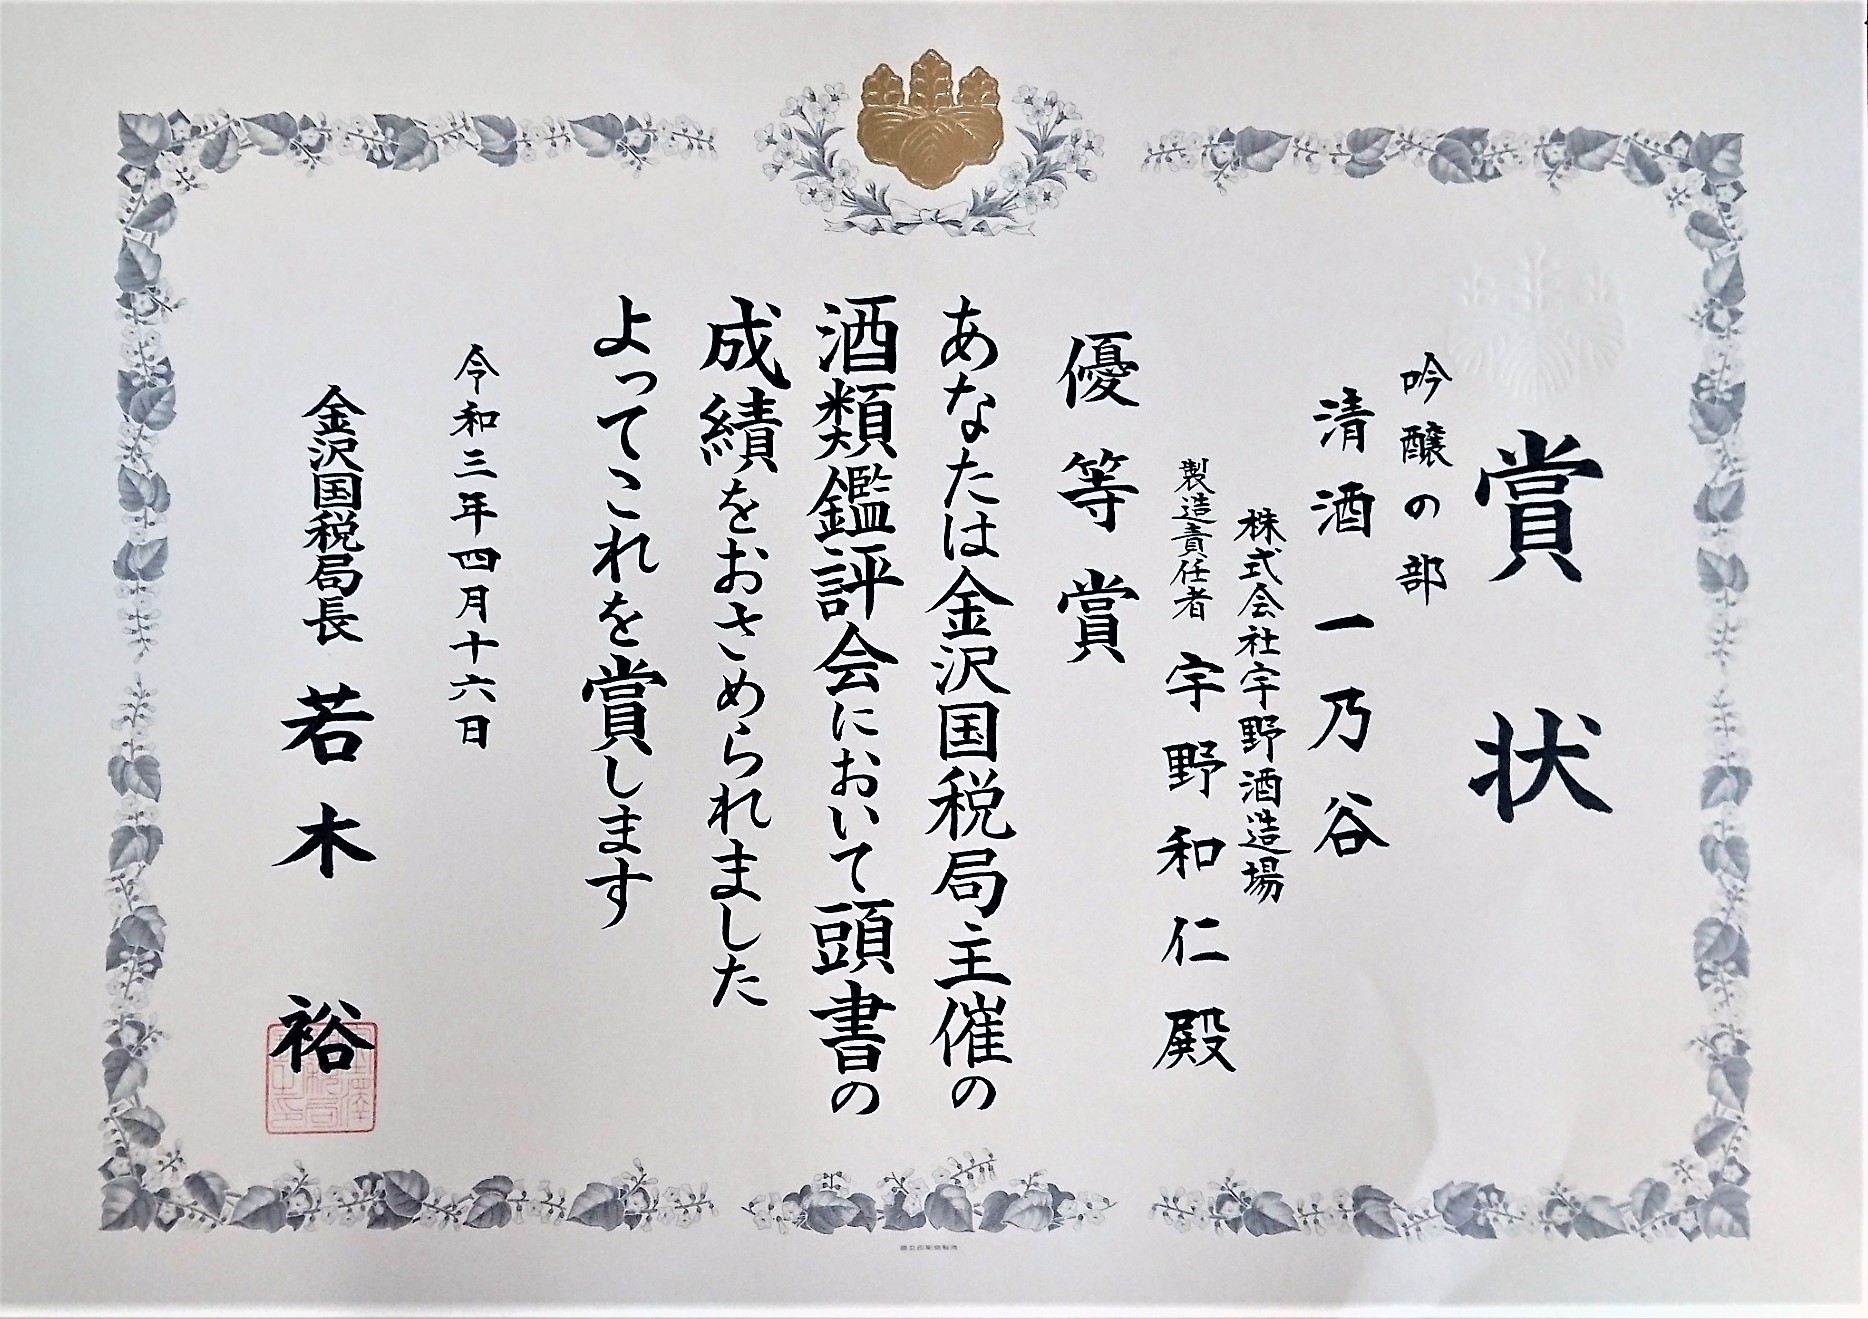 賞状
吟醸の部
清酒 一乃谷
株式会社宇野酒造場
製造責任者 宇野和仁殿
優等賞
あなたは金沢国税局主催の
酒類鑑評会において頭書の
成績をおさめられました
よってこれを賞します
令和三年四月十六日
金沢国税局長 若木 裕